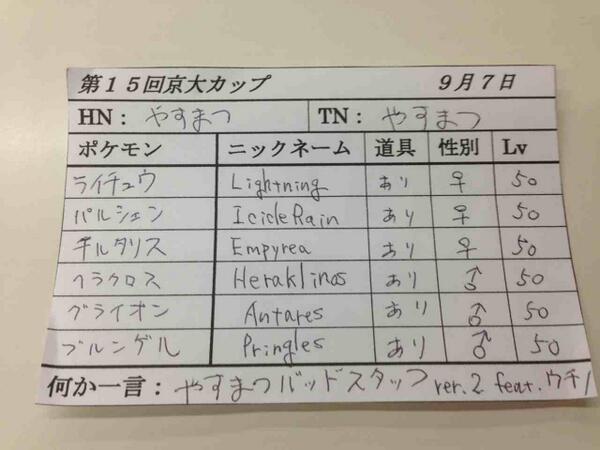 第15回京大カップ 9月7日
HN: やすまつ TN: やすまつ
ポケモン ニックネーム 道具 性別 Lv
ライチュウ Lightning あり ♀ 50
パルシェン IcicleRain あり ♀ 50
チルタリス Empyrea あり ♀ 50
ヘラクロス Heraklinos あり ♂ 50
グライオン Antares あり ♂ 50
ブルンゲル Pringles あり ♂ 50
何か一言: やすまつバッドスタッフ ver.2 feat.ウチノ